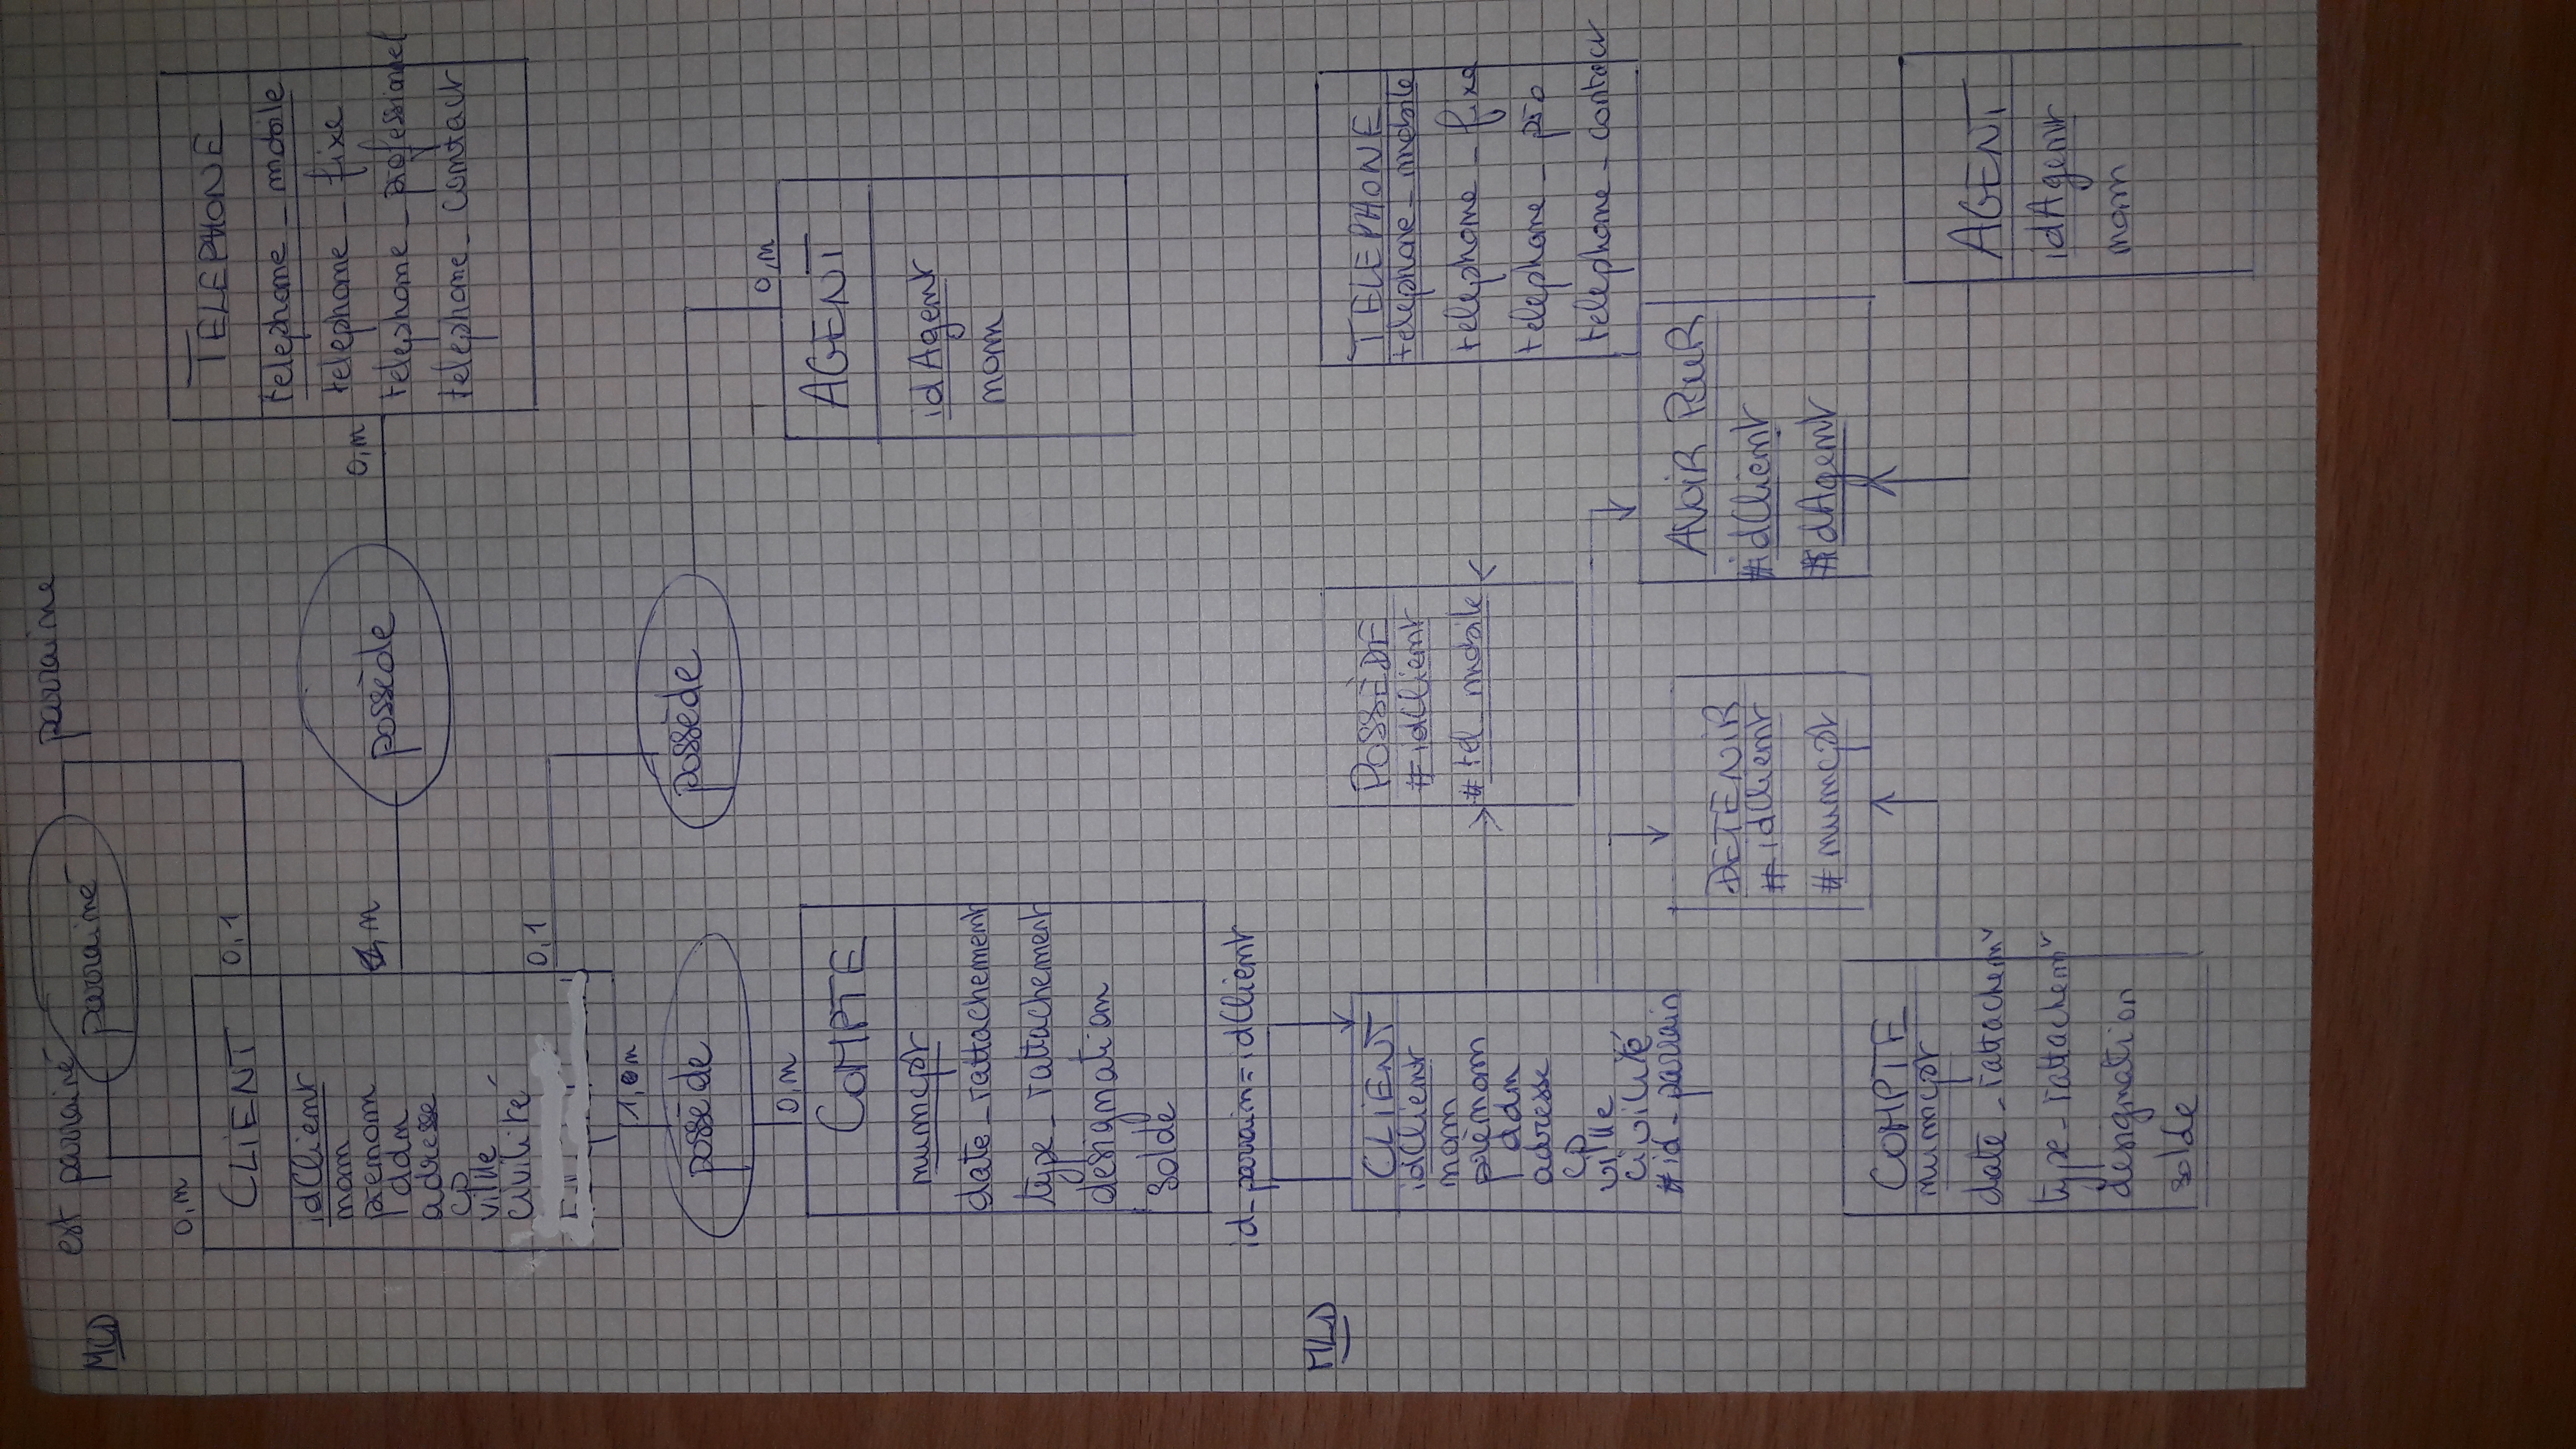 est parrainé
parrainé
parraine
MCD
0,n
CLIENT
0,1
idClient
nom
prenom
ddn
adresse
cp
ville
civilité
,n
possède
0,n
TELEPHONE
telephone_mobile
telephone_fixe
telephone_professionnel
telephone_contact
0,1
1,n
possède
possède
0,n
0,n
COMPTE
numcpt
date_rattachement
type_rattachement
designation
solde
AGENT
idAgent
nom
id_parrain=idClient
MLD
CLIENT
idClient
nom
prénom
ddn
adresse
cp
ville
civilité
#id_parrain
POSSÈDE
#idClient
#tel_mobile
TELEPHONE
telephone_mobile
telephone_fixe
telephone_pro
telephone_contact
DETENIR
#idClient
#numcpt
AVOIR POUR
#idClient
#idAgent
COMPTE
numcpt
date_rattachemt
type_rattachemt
designation
solde
AGENT
idAgent
nom